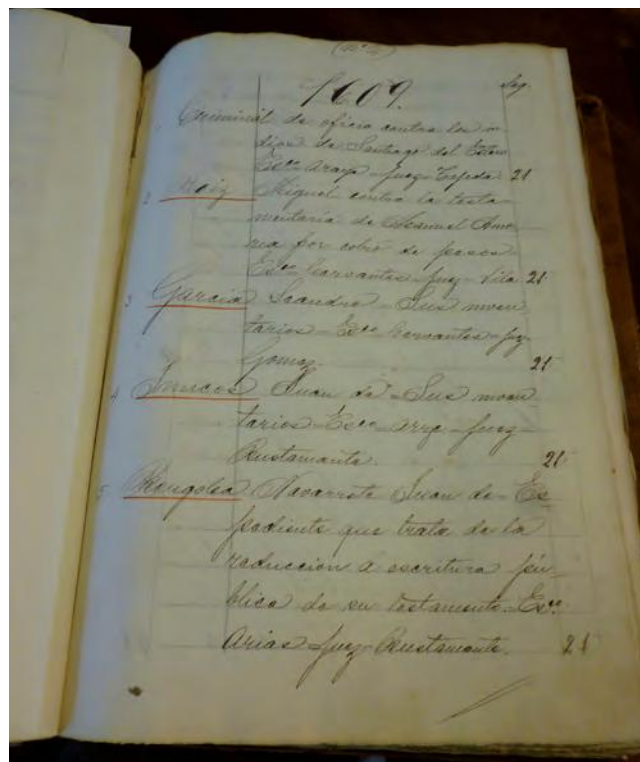 1609.
Leg.
1 Criminal de oficio contra los in-
dios de Santiago del Estero
Esno Araya - Juez - Cepeda 21
2 Miguel contra la testa-
mentaria de Manuel
por cobro de pesos
Esno Cervantes - Juez - Vila 21
3 Garcia Leandro - Sus inven
tarios - Esno Cervantes - Jz-
Gomez - 21
4 Juan de - Sus inven
tarios - Esno - Juez -
Bustamante. 21
5 Navarrete Juan de - Es
pediente que trata de la
reduccion a escritura pú-
blica de su testamento - Esno
Arias Juez - Bustamante. 21